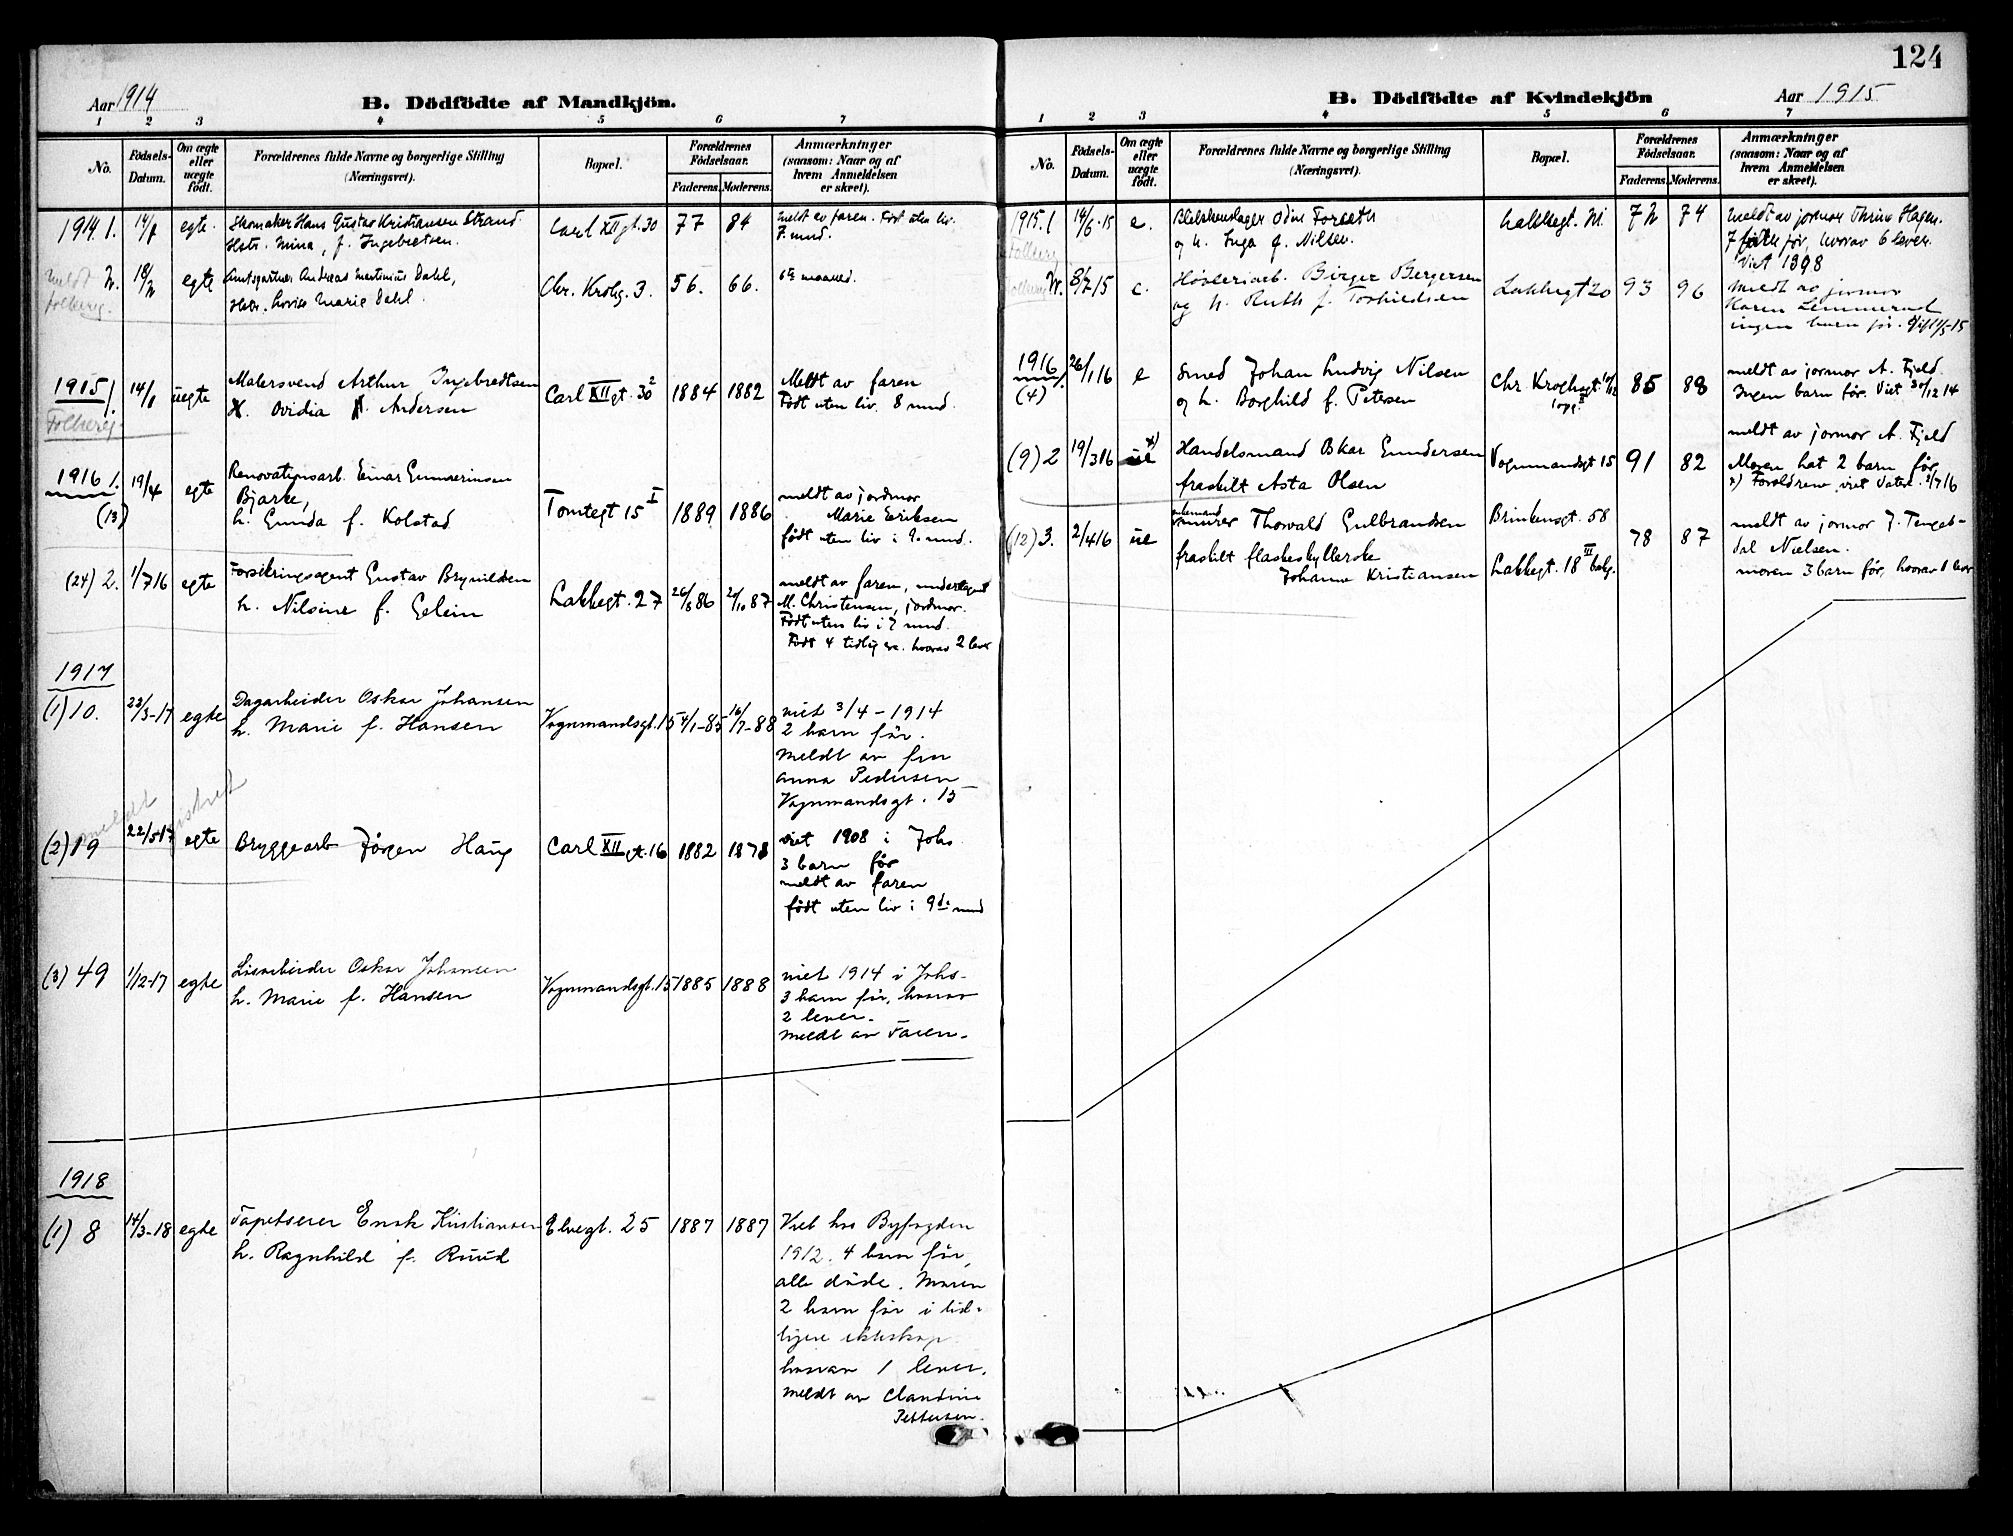 124
Aar 1914
B. Dödfödte af Mandkjön.
1 2 3 4 5 6 7
No.
Födsels-
Datum.
Om ægte
eller
uægte
födt.
Forældrenes fulde Navne og borgerlige Stilling
(Næringsvei).
Bopæl.
Forældrenes
Födselsaar.
Faderens. Moderens.
Anmærkninger
(saasom: Naar og af
hvem Anmeldelsen
er skeet).
1914. 1. egte. Skomaker Hans Gustav Kristiansen Strand Carl XII gt. 30 77 84 meldt av faren. Født uten liv.
Hstr. Mina, f. Ingebretsen. 7. mnd.
meldt 2. 18/2 egte Amtsgartner Andreas Martinius Dahl, Chr. Krohg. 3. 56. 66.
Folkereg. Hstr. Lovise Marie Dahl.
1915 1. uegte Malersvend Arthur Ingebredtsen Carl XII gt. 30² 1884 1882 Meldt av faren
Folkereg. Ovidia Andersen Født uten liv. 8 mnd.
1916 1. 19/4 egte Renovationsarb. Einar Gunnerinsen
(13) Bjarke, Tomtegt 15 I 1889 1886 meldt av jordmor
h. Gunda f. Kolstad Marie Eriksen
født uten liv i 9. mnd.
(24) 2. 1/7 16 egte Forsikringsagent Gustav Brynildsen Lakkegt. 27 26/8 86 2/10 87 meldt av faren,
h. Nilsine f. Gelein M. Christensen, jordmor.
Født uten liv i 7 mnd.
Født 4 tidlig ere. hvorav 2 lever
1917
(1) 10. 23/3-17 egte Dagarbeider Oskar Johansen Vognmandsgt. 15 4/1-85 16/7-88 viet 3/4-1914
h. Marie f. Hansen 2 barn før.
meldt av fru
Anna Pedersen
Vognmandsgt. 15
meldt
(2) 19 22/5 17 egte Bryggearb Jörgen Haug Carl XII gt. 16 1882 1878 viet 1908 i Johs.
3 barn før
meldt av faren
født uten liv i 9de mnd
(3) 49 1/12-17 egte Løsarbeider Oskar Johansen Vognmandsgt. 15 1885 1888 viet 1914 i Johs-
h. Marie f. Hansen 3 barn før, hvorav
2 lever.
meldt av Faren.
1918
(1) 8 14/3-18 egte Tapetserer Enok Kristiansen Elvegt. 25 1887 1887 Viet hos Byfogden
h. Ragnhild f. Ruud 1912. 4 barn før,
alle døde. Moren
2 barn før i tid-
ligere ekteskap
hvorav 1 lever.
meldt av Claudine
Pettersen.
B. Dödfödte af Kvindekjön
Aar 1915
1 2 3 4 5 6 7
No.
Födsels-
Datum.
Om ægte
eller
uægte
födt.
Forældrenes fulde Navne og borgerlige Stilling
(Næringsvei).
Bopæl.
Forældrenes
Födselsaar.
Faderens. Moderens.
Anmærkninger
(saasom: Naar og af
hvem Anmeldelsen
er skeet).
1915. 1 14/6-15 e. Blikkenslager Odin Forseth Lakkegt. 72 74 meldt av jormor Thrine Hagen.
Folkereg og h. Inga f. Nilsen. 7 født før, hvorav 6 lever.
Viet 1898
Folkereg 2. 15 e. Høvleriarb. Birger Bergersen Lakkegt 20 93 96 meldt av jormor
og h. Ruth f. Torkildsen Karen Lemmerud
ingen barn før.
1916 1. 26/1 16 e Smed Johan Ludvig Nilsen Chr Kroghsgt. 85 88 meldt av jormor A. Fjeld.
(4) og h. Borghild f. Petersen Ingen barn før. Viet 30/12 14
(9) 2 19/3 16 ue x) Handelsmand Oskar Gundersen Vognmandsgt 15 91 82 meldt av jormor A. Fjeld
fraskilt Asta Olsen Moren hat 2 barn før
x) Foreldrene viet 2/7 16
(12) 3. 2/4 16 ue murer Thorvald Gulbrandsen Brinkensgt. 58 78 87 meldt av jormor J. Tengs-
fraskilt flaskeskyllerske dal Nielsen.
Johanne Kristiansen Lakkegt. 18 III moren 3 barn før, hvorav 1 lever